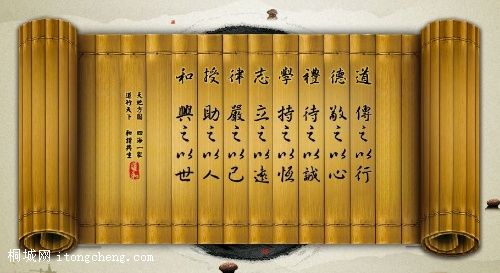 道 傳之以行
德 敬之以心
禮 待之以誠
學 持之以恆
志 立之以遠
律 嚴之以己
授 助之以人
和 興之以世
天地方圓 四海一家
道行天下 和諧共生
桐城网 itongcheng.com